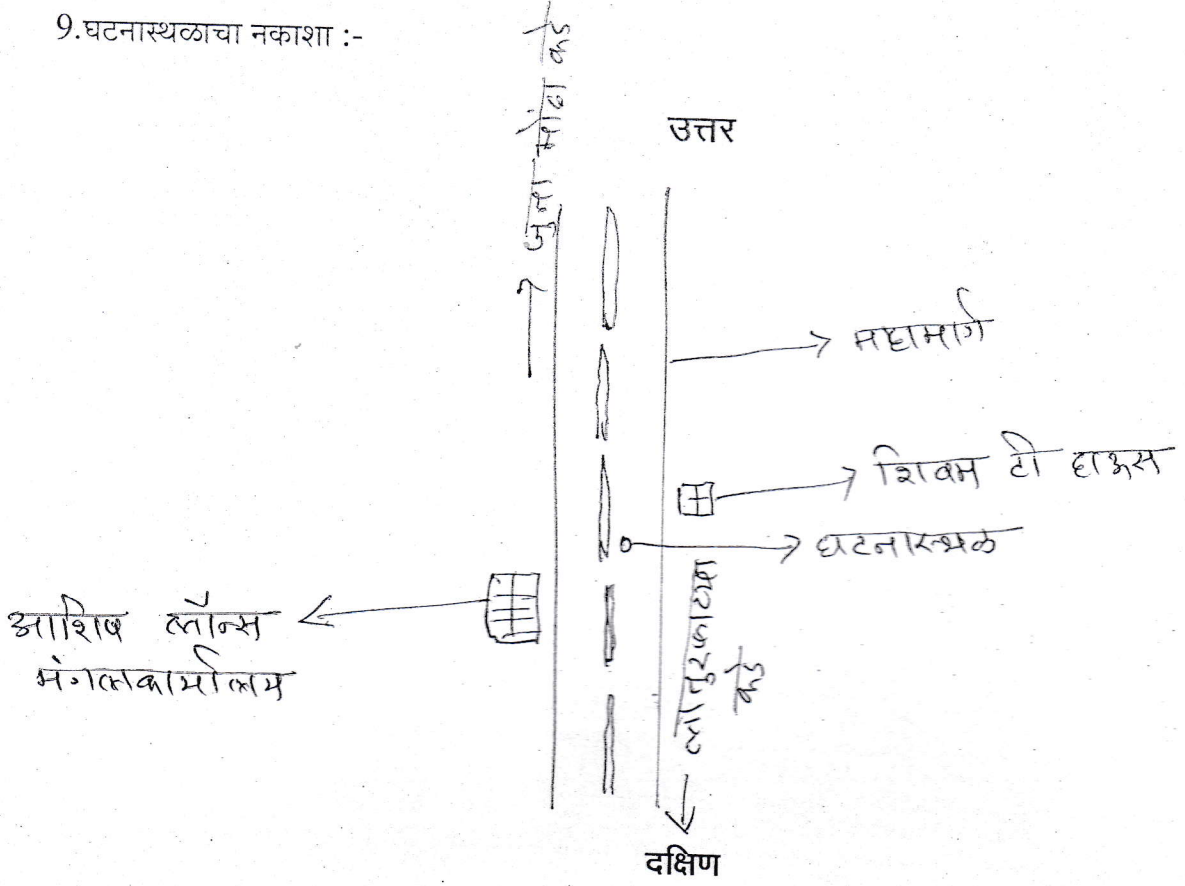 9.घटनास्थळाचा नकाशा :-
जुना मोंढा कडे
उत्तर
महामार्ग
शिवम टी हाऊस
घटनास्थळ
आशिष लॉन्स
मंगलकार्यालय
लातुरफाटा
कडे
दक्षिण